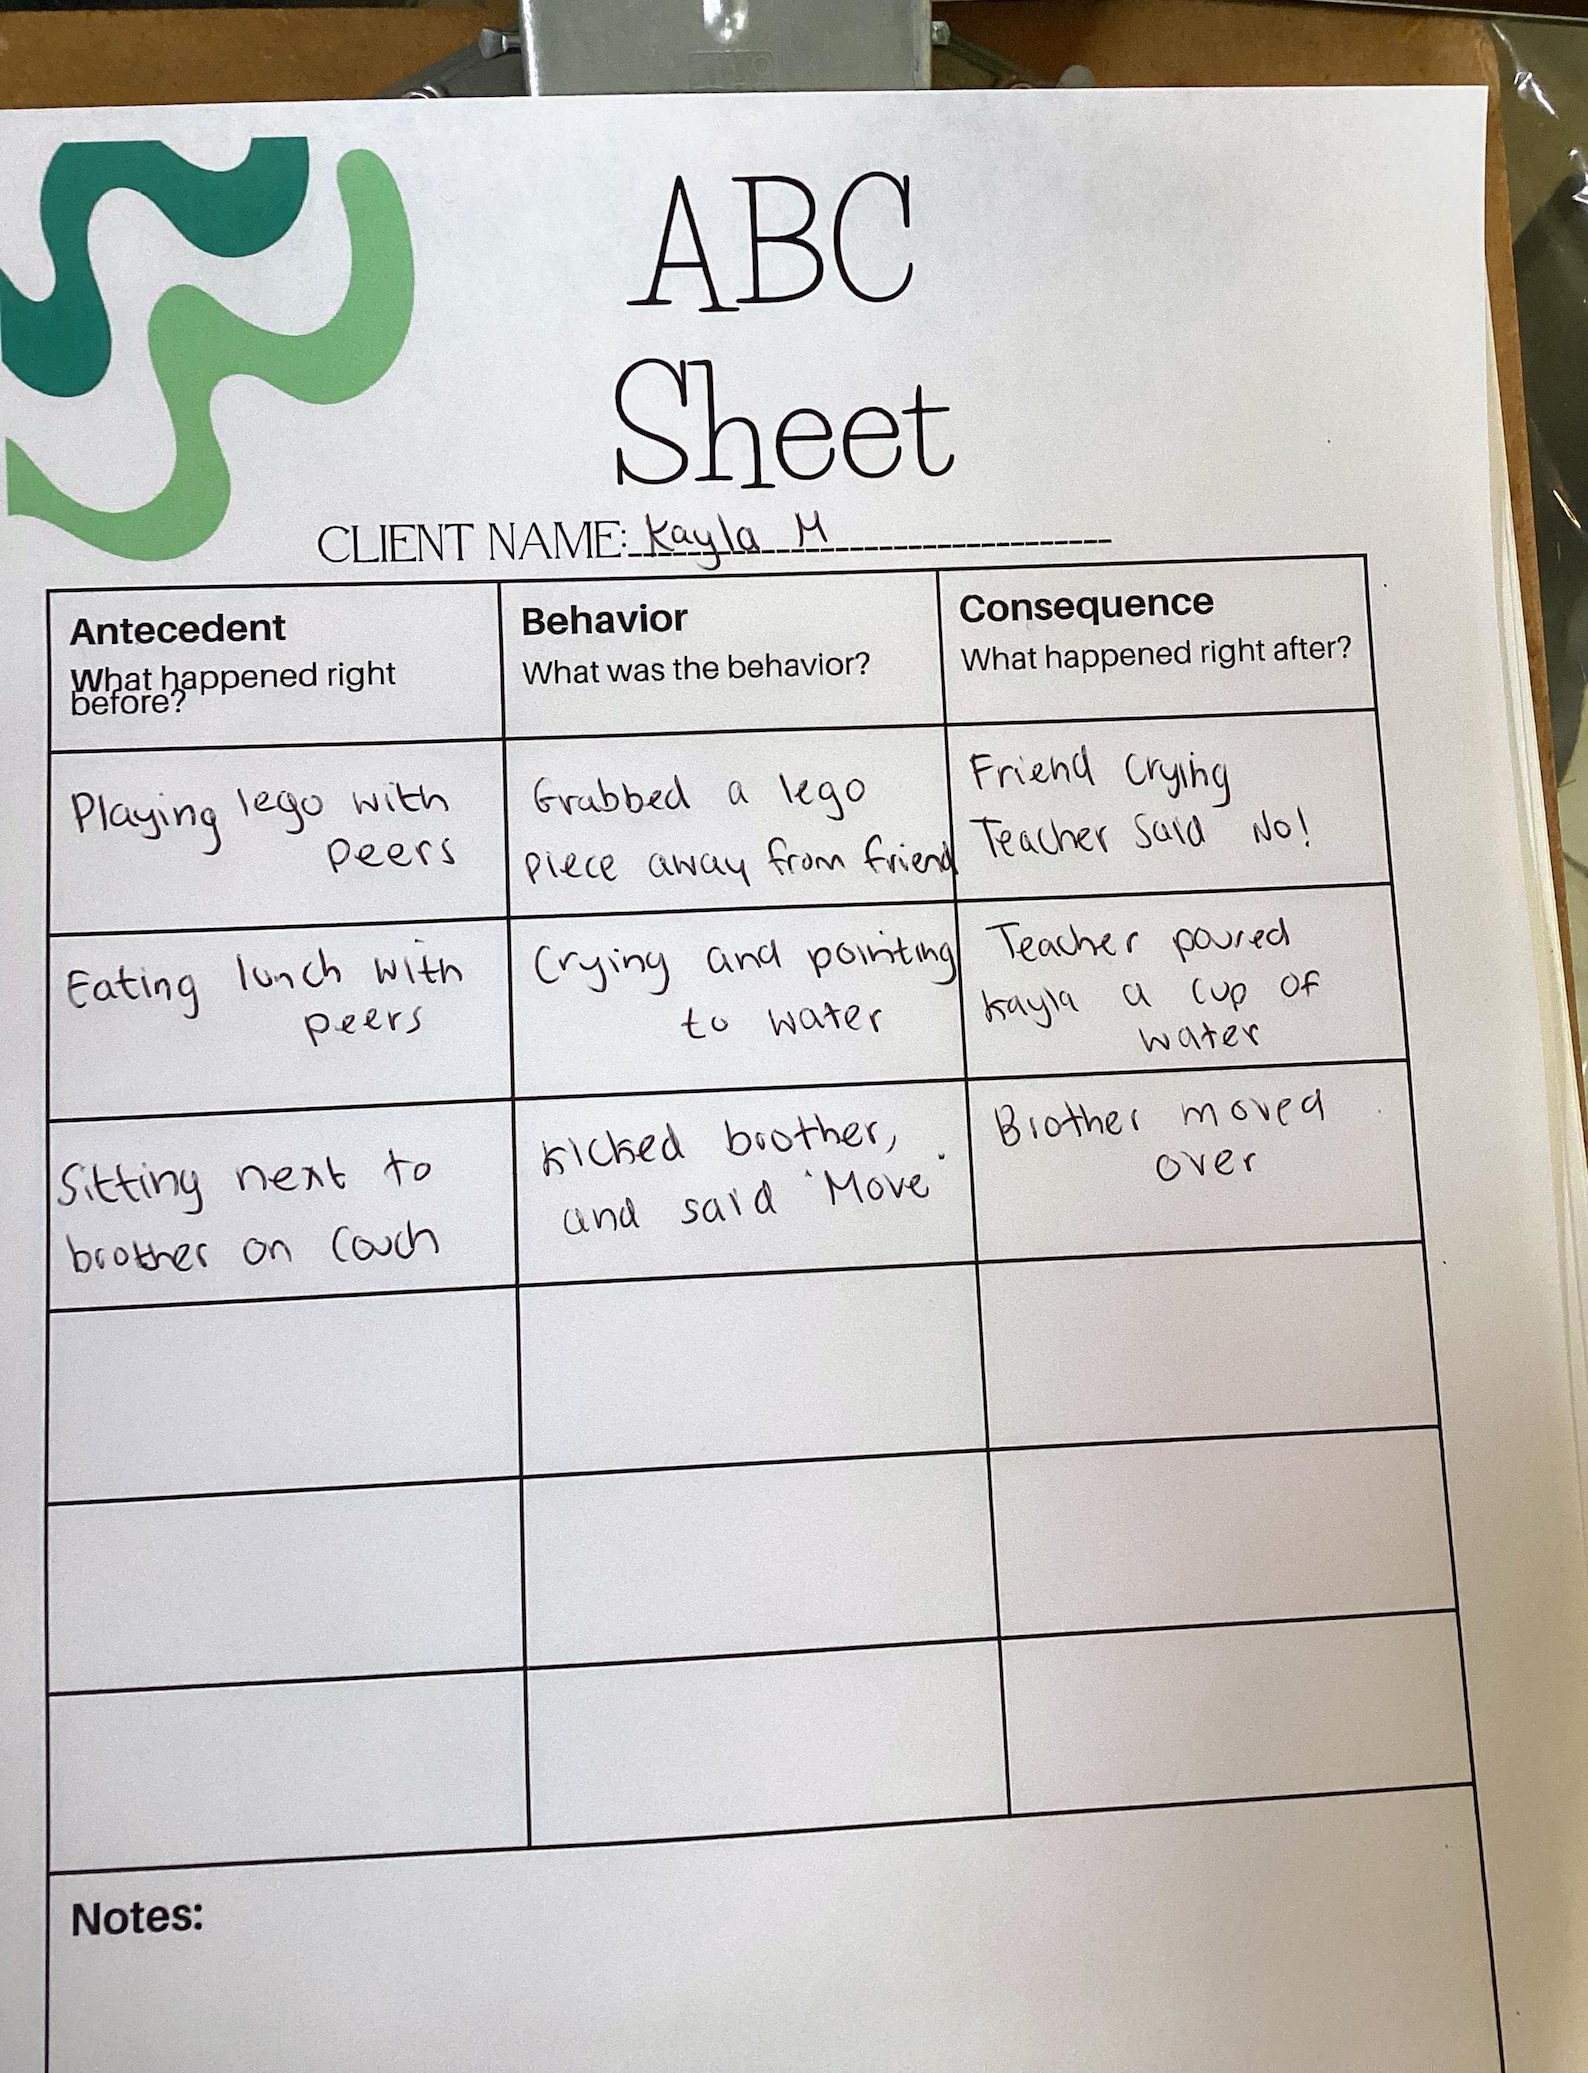 ABC
Sheet
CLIENT NAME: Kayla M
Antecedent
What happened right
before?
Behavior
What was the behavior?
Consequence
What happened right after?
Playing lego with
peers
Grabbed a lego
piece away from friend
Friend crying
Teacher said No!
Eating lunch with
peers
Crying and pointing
to water
Teacher poured
Kayla a cup of
water
Sitting next to
brother on couch
Kicked brother,
and said 'Move'.
Brother moved
over
Notes: